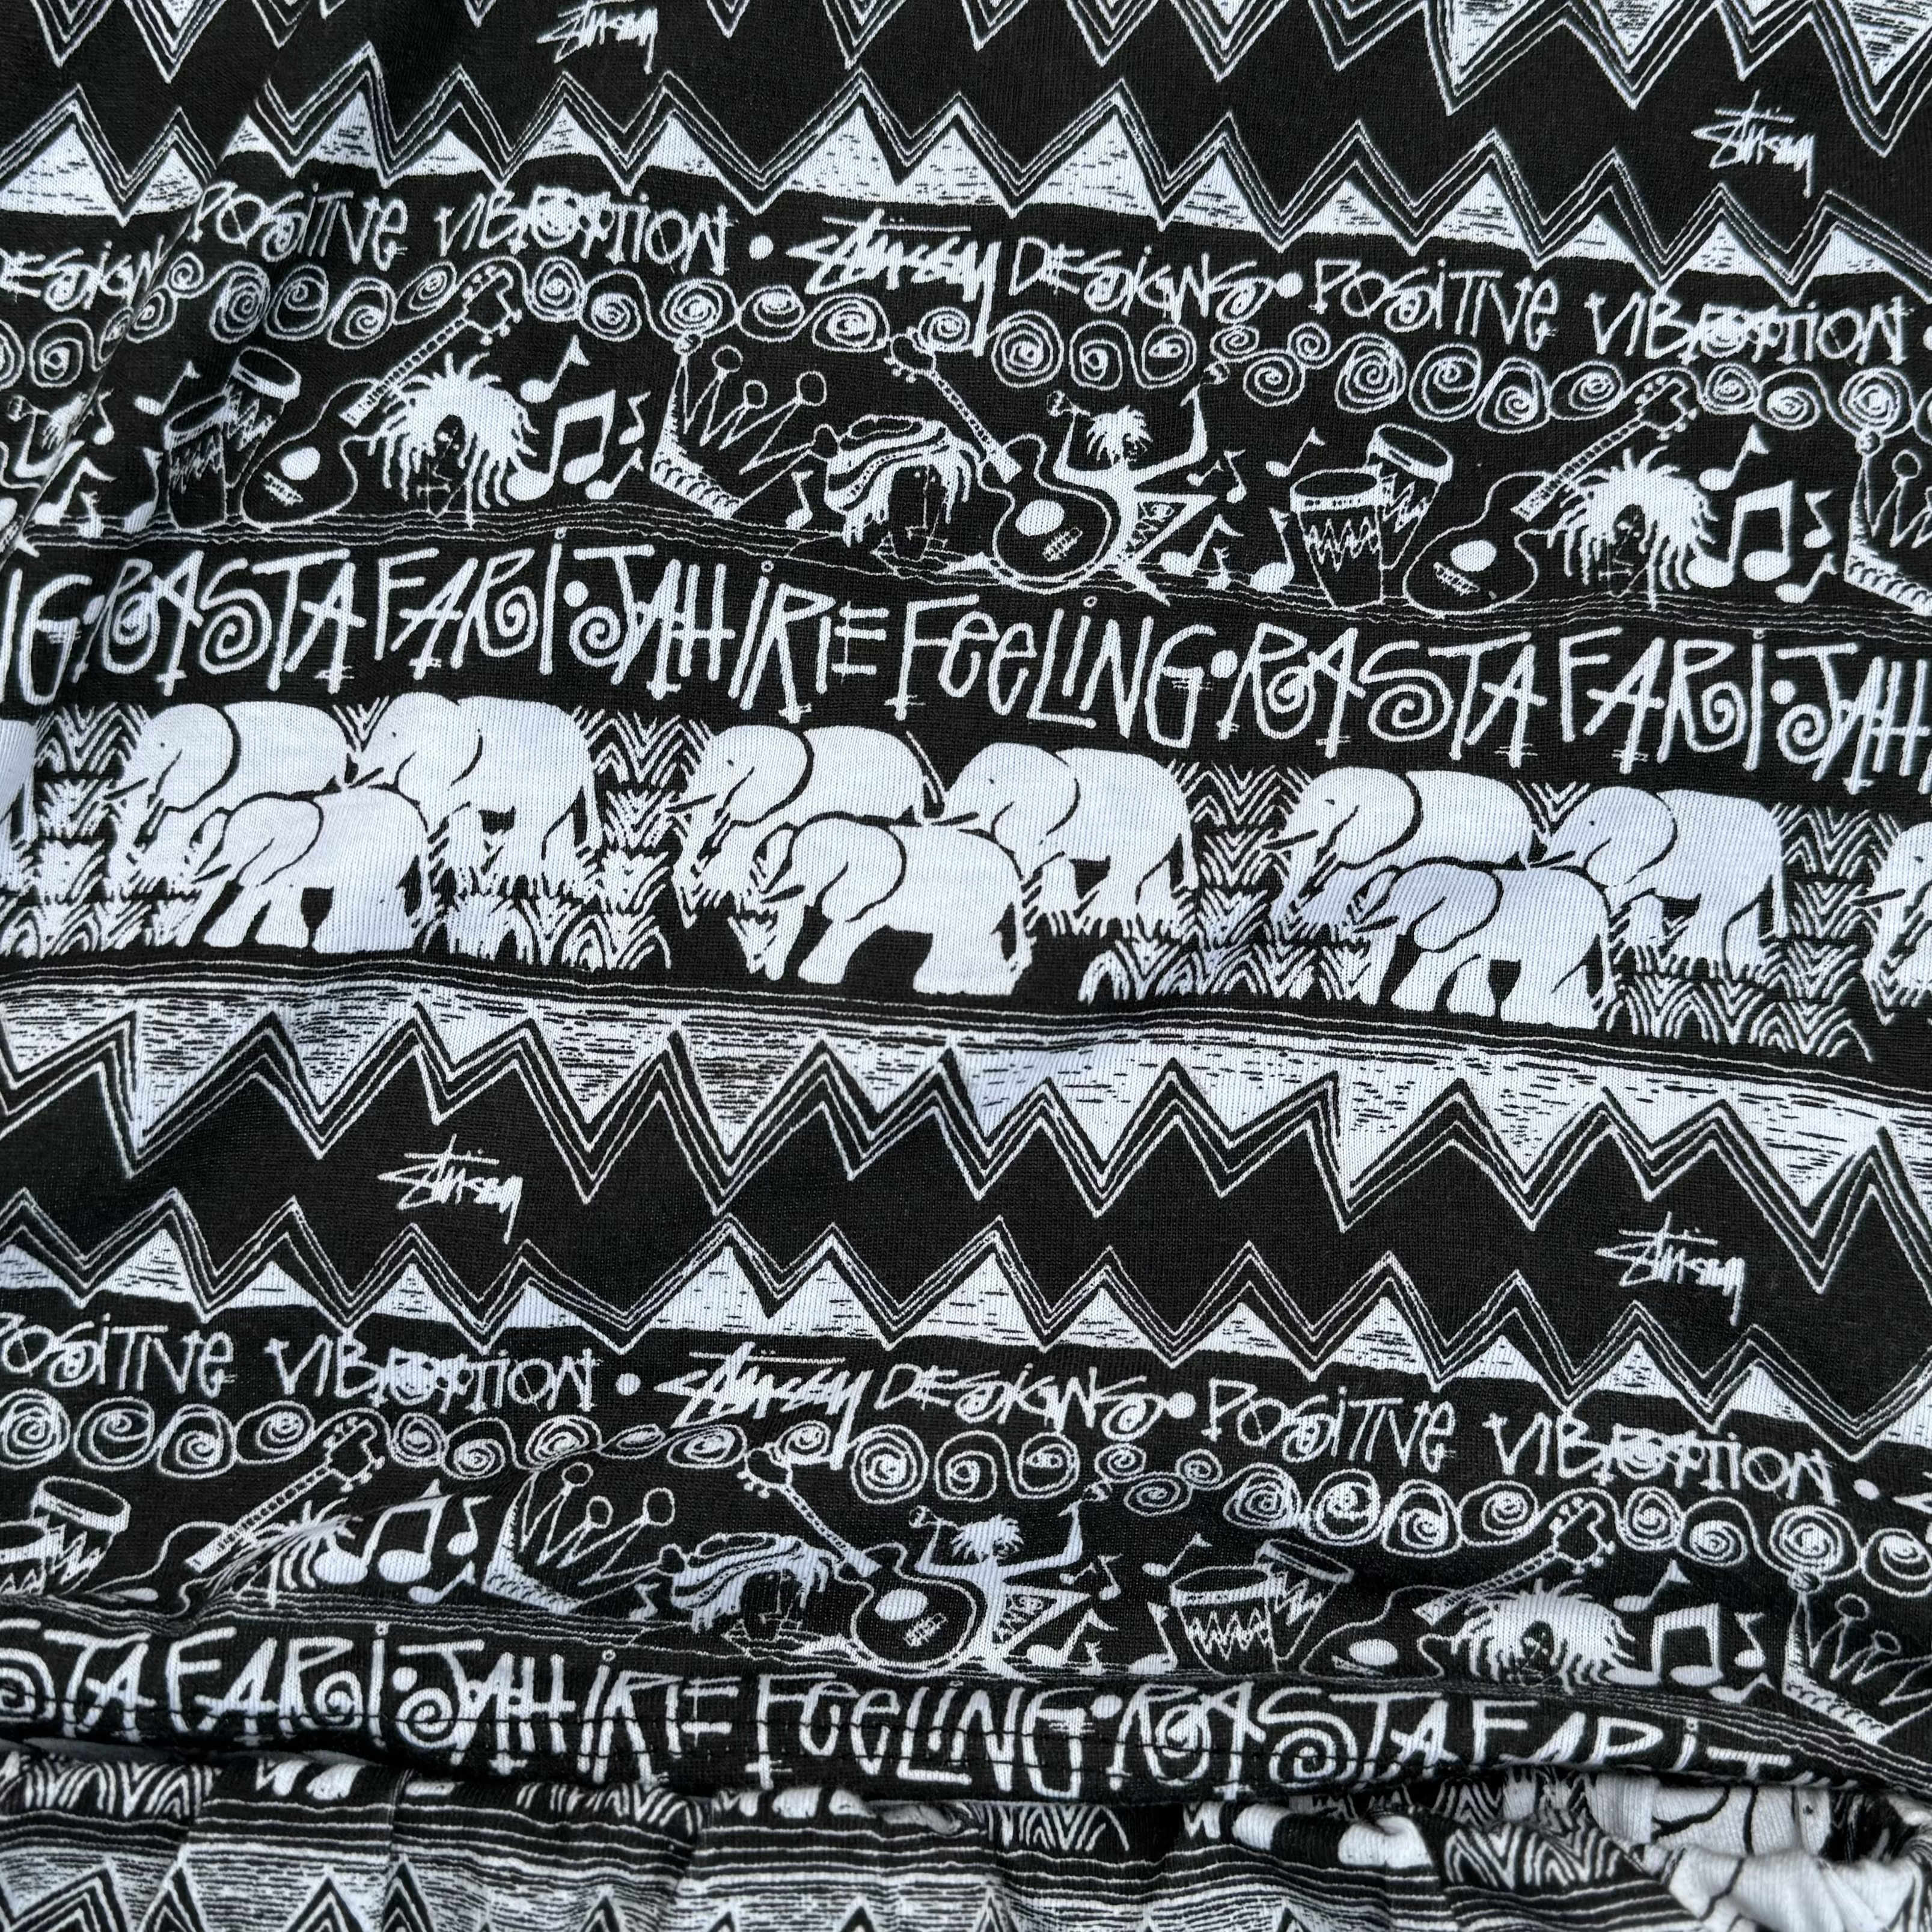 Stüssy
Stüssy
DESIGN POSITIVE VIBRATION • Stüssy DESIGNS • POSITIVE VIBRATION •
G • RASTAFARI • JAH IRIE FEELING • RASTAFARI • JAH
Stüssy
Stüssy
POSITIVE VIBRATION • Stüssy DESIGNS • POSITIVE VIBRATION •
STAFARI • JAH IRIE FEELING • RASTAFARI